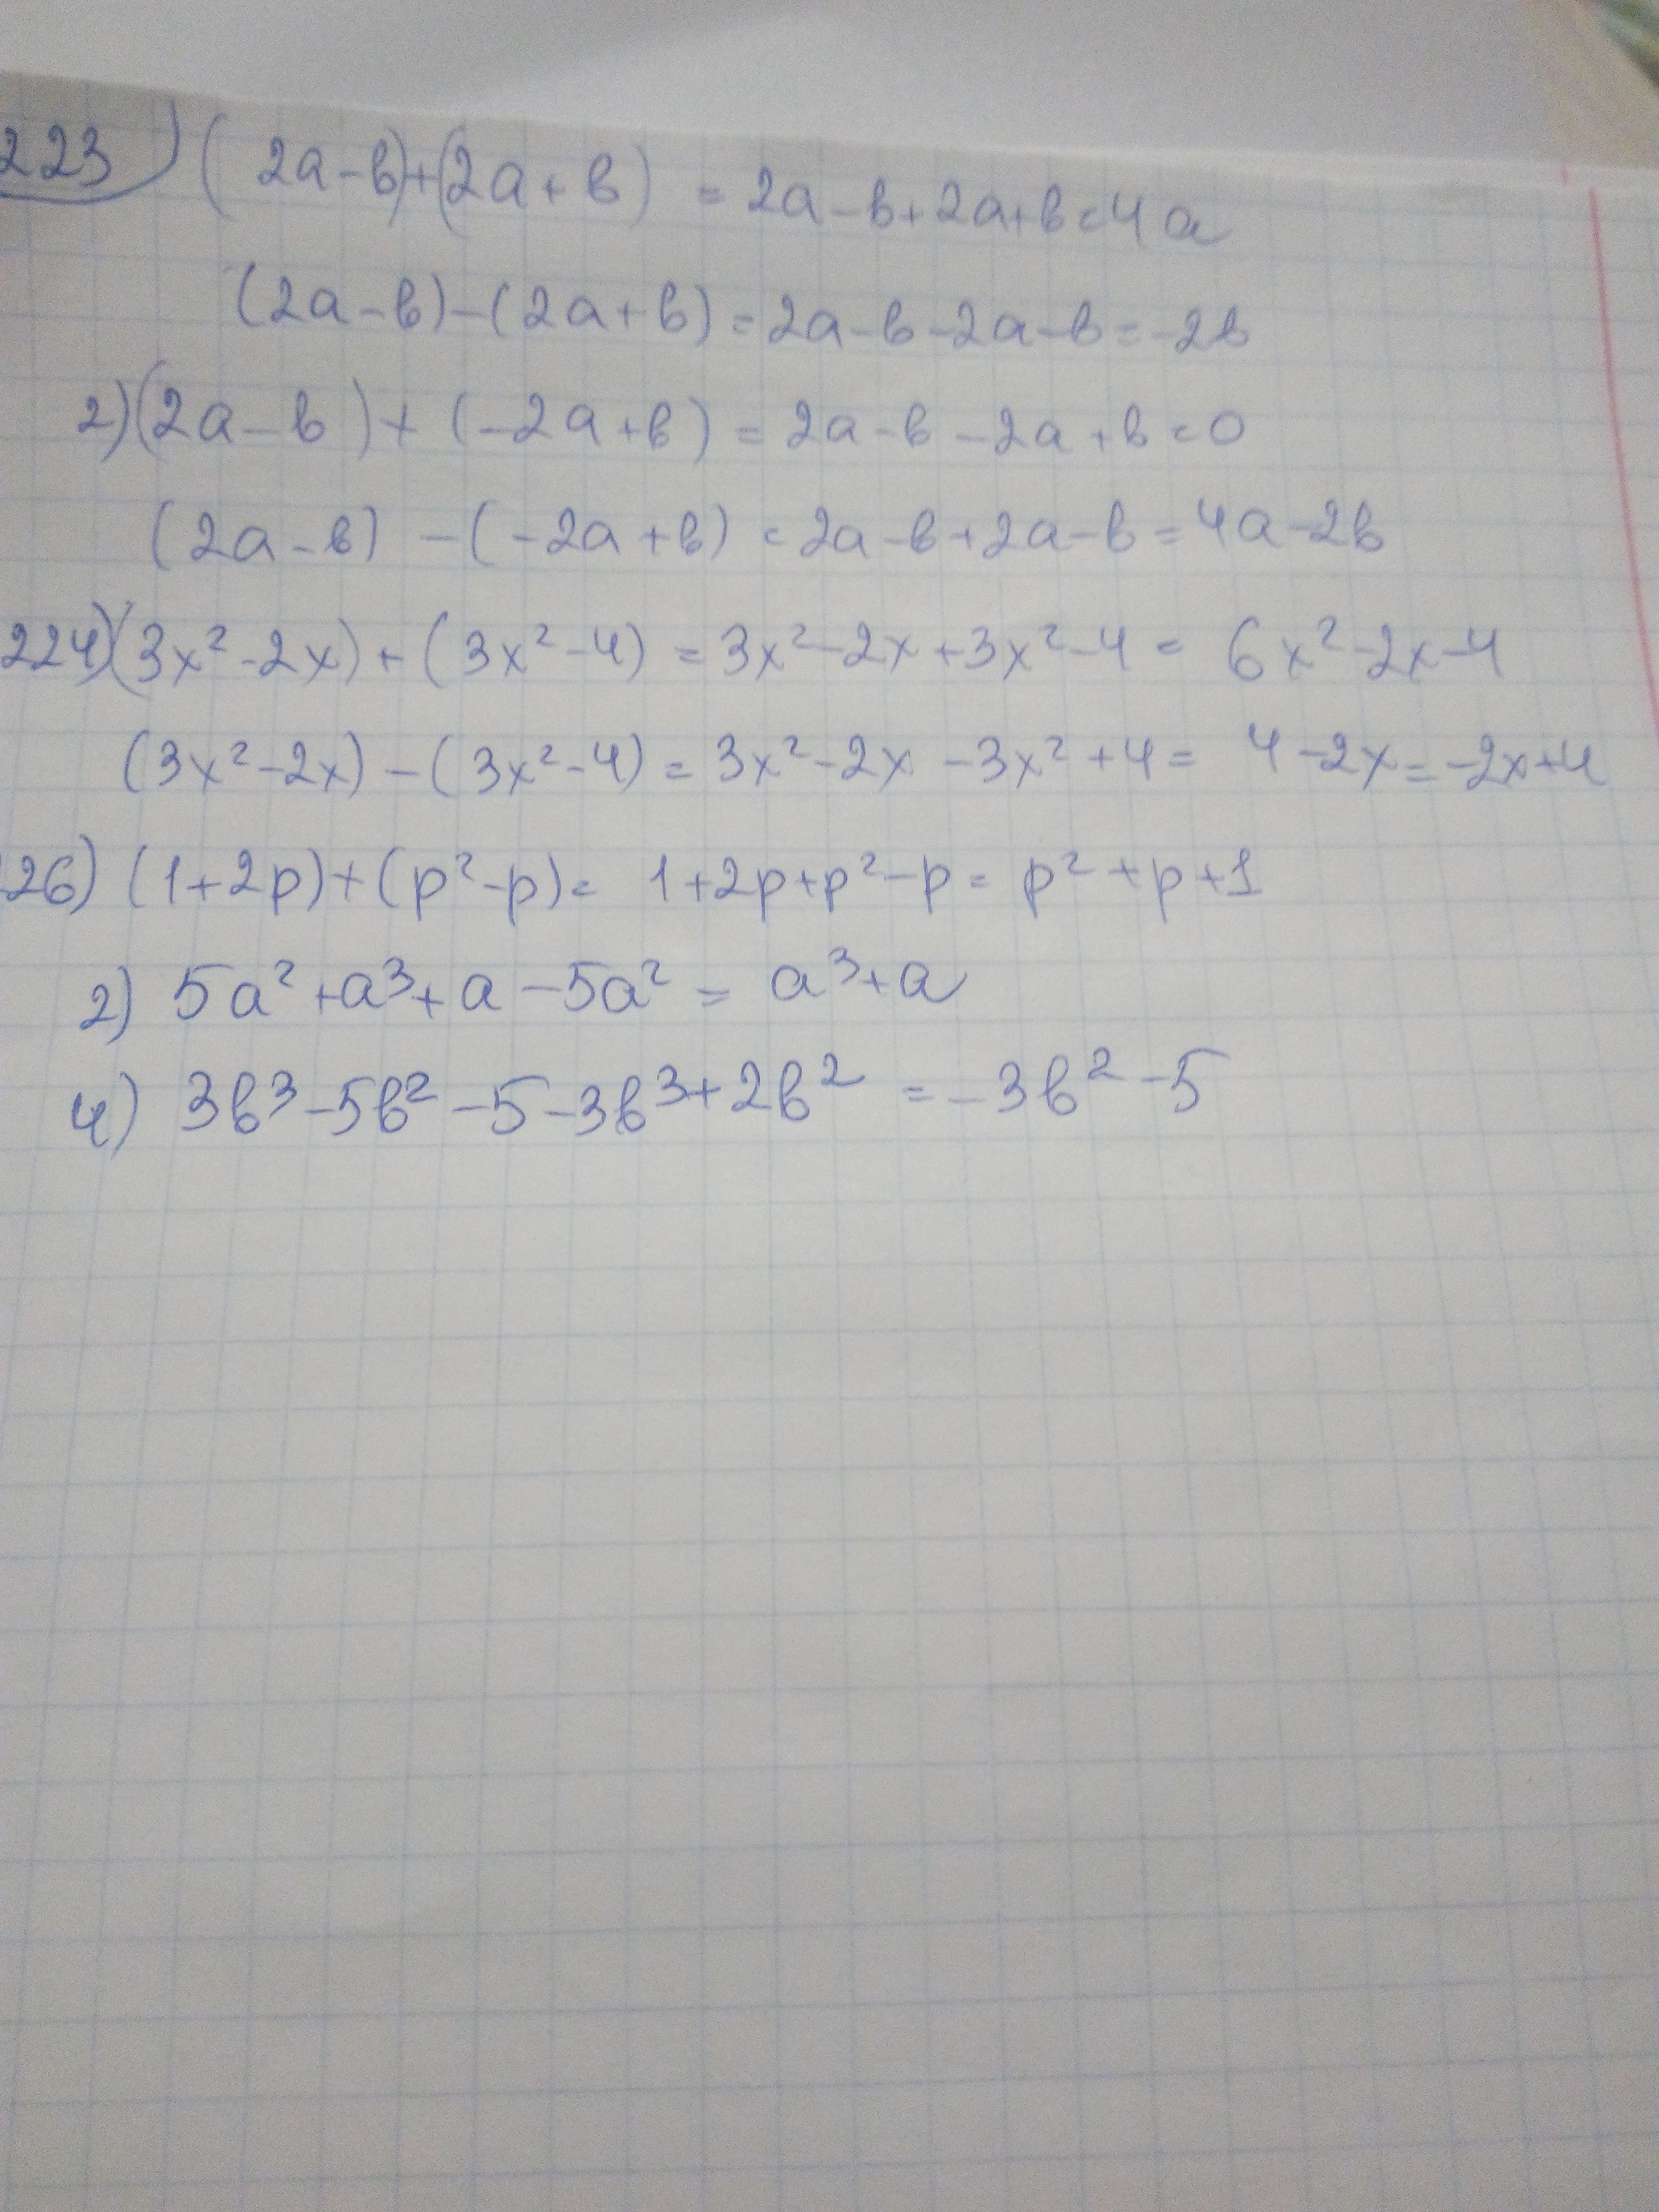 223) (2a-в)+(2a+в) = 2a-в+2a+в=4a
(2a-в)-(2a+в)=2a-в-2a-в=-2в
2)(2a-в)+(-2a+в)=2a-в-2a+в=0
(2a-в)-(-2a+в)=2a-в+2a-в=4a-2в
224)(3x²-2x)+(3x²-4)=3x²-2x+3x²-4= 6x²-2x-4
(3x²-2x)-(3x²-4)=3x²-2x-3x²+4= 4-2x=-2x+4
26) (1+2p)+(p²-p)= 1+2p+p²-p= p²+p+1
2) 5a²+a³+a-5a²= a³+a
4) 3в³-5в²-5-3в³+2в²=-3в²-5